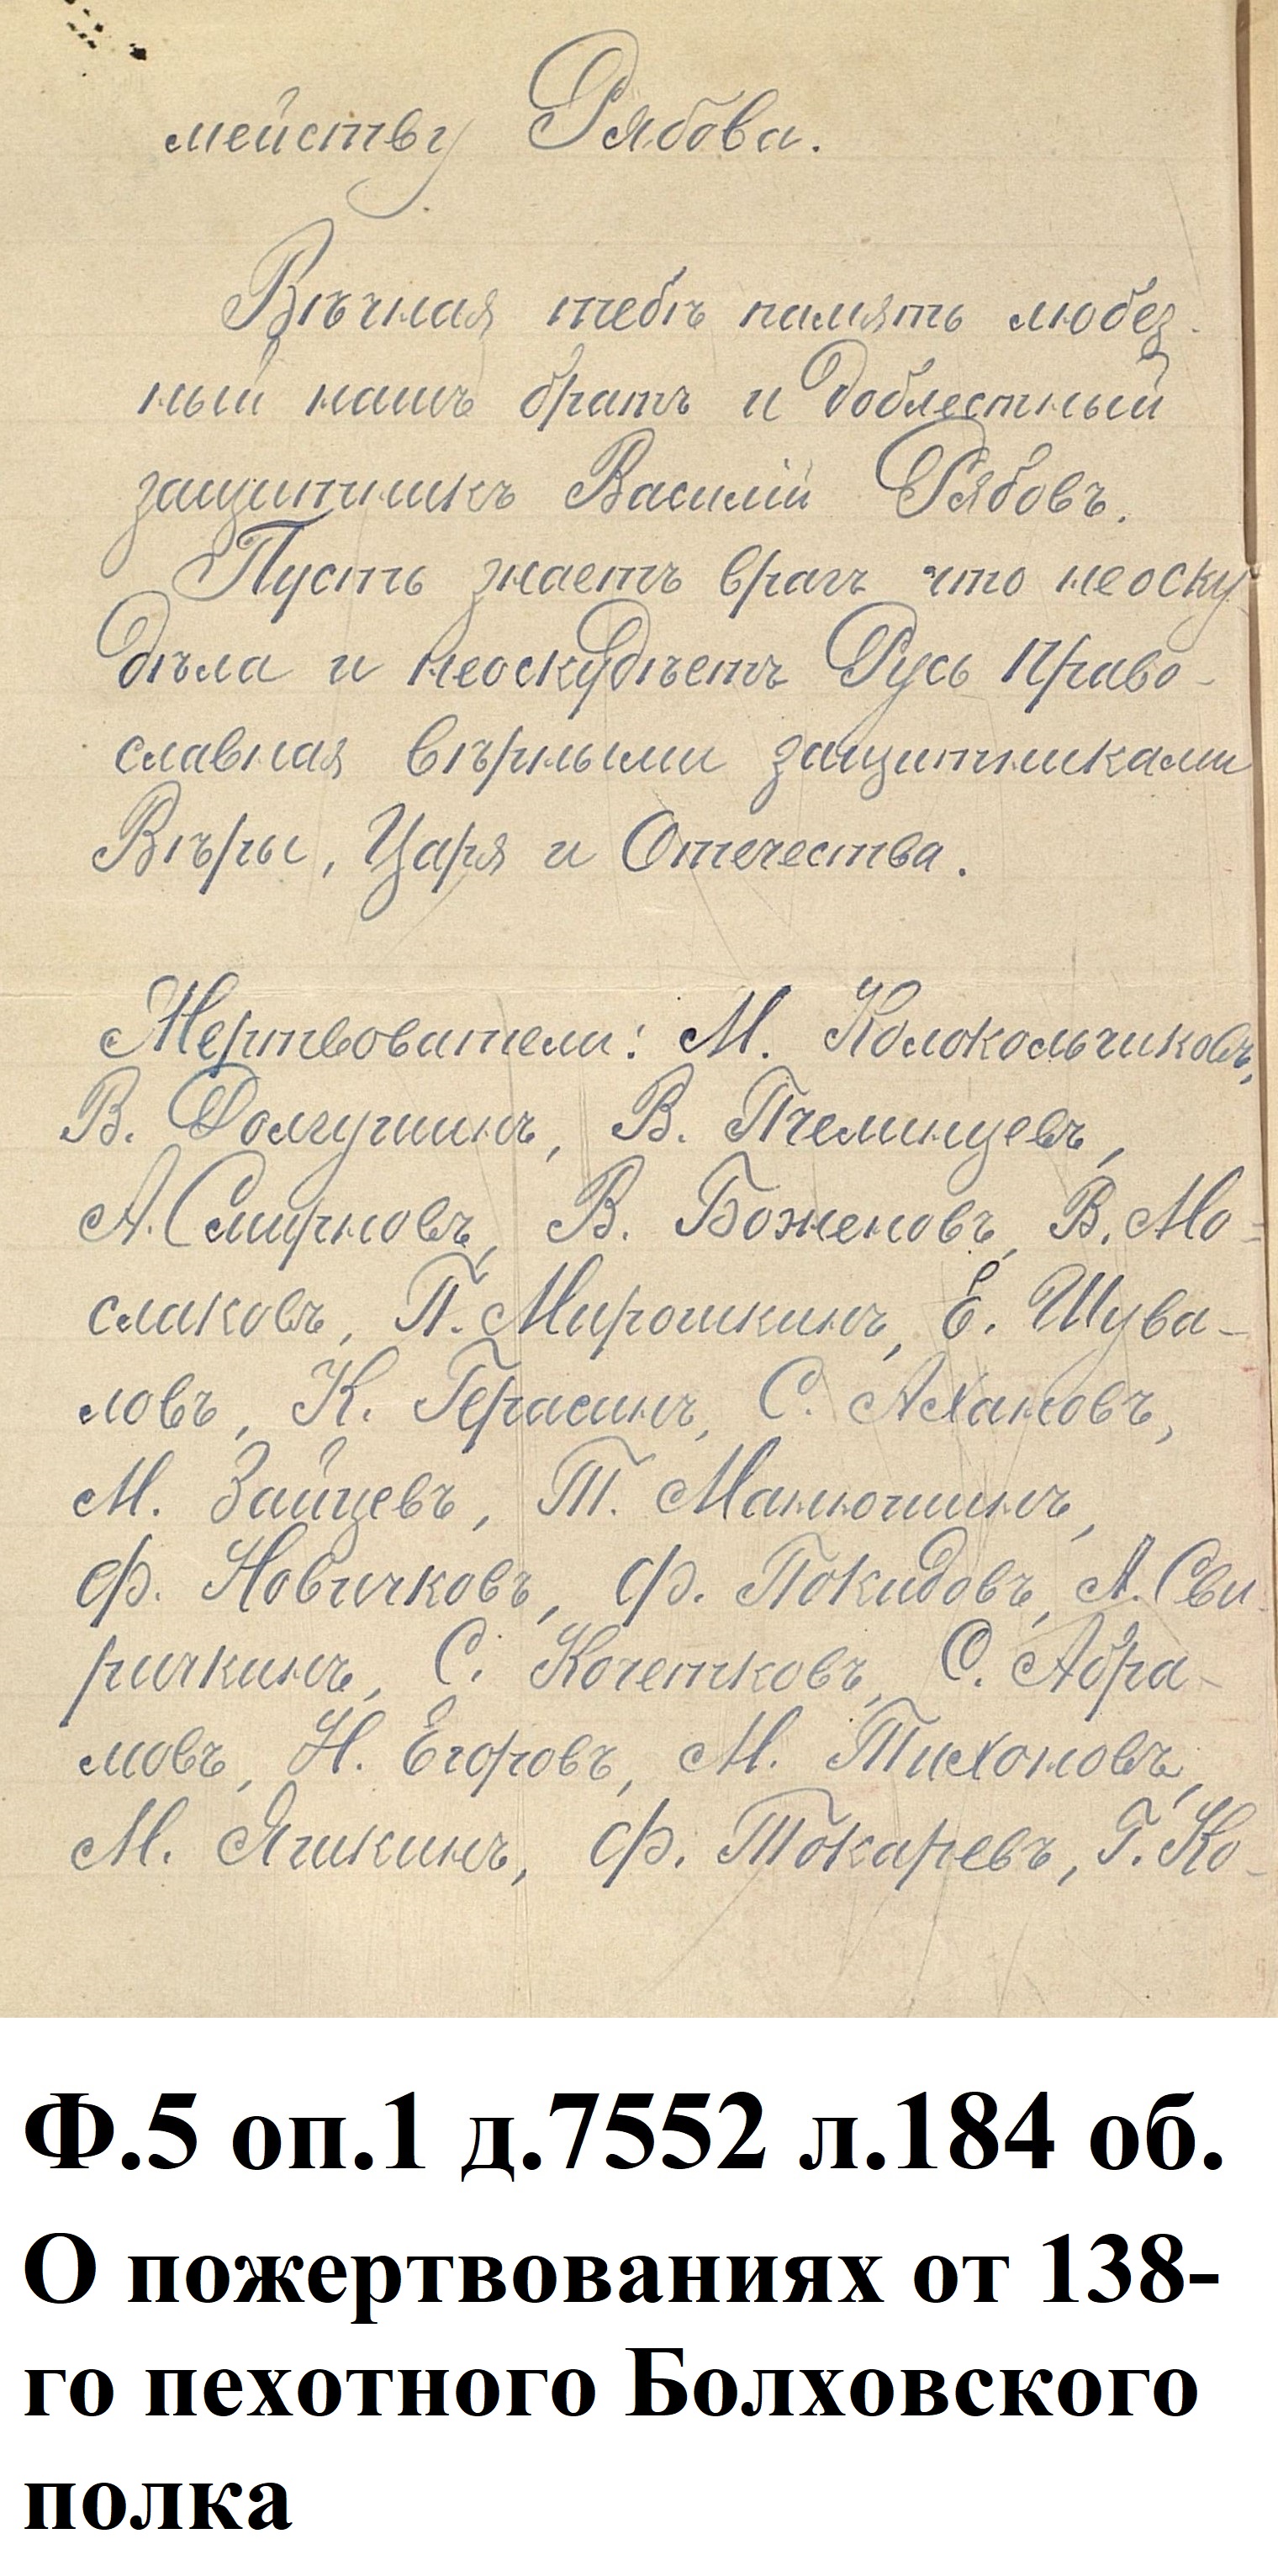 мейству Рябова.
Вѣчная тебѣ память любез-
ный нашъ братъ и доблестный
защитникъ Василій Рябовъ.
Пусть знаетъ врагъ что неоску-
дѣла и неоскудѣетъ Русь Право-
славная вѣрными защитниками
Вѣры, Царя и Отечества.
Жертвователи: М. Колокольчиковъ,
В. Долгушинъ, В. Пчелинцевъ,
А. Смирновъ, В. Боженовъ, В. Мо=
слаковъ, П. Мирошкинъ, Е. Шува-
ловъ, К. Герасинъ, С. Ахановъ,
М. Зайцевъ, Т. Манюшинъ,
Ф. Новичковъ, Ф. Покидовъ, А. Сви-
ричкинъ, С. Кочетковъ, С. Абра-
мовъ, Н. Егоровъ, М. Тихоновъ,
М. Яшкинъ, Ф. Токаревъ, Г. Ко-
Ф.5 оп.1 д.7552 л.184 об.
О пожертвованиях от 138-
го пехотного Болховского
полка